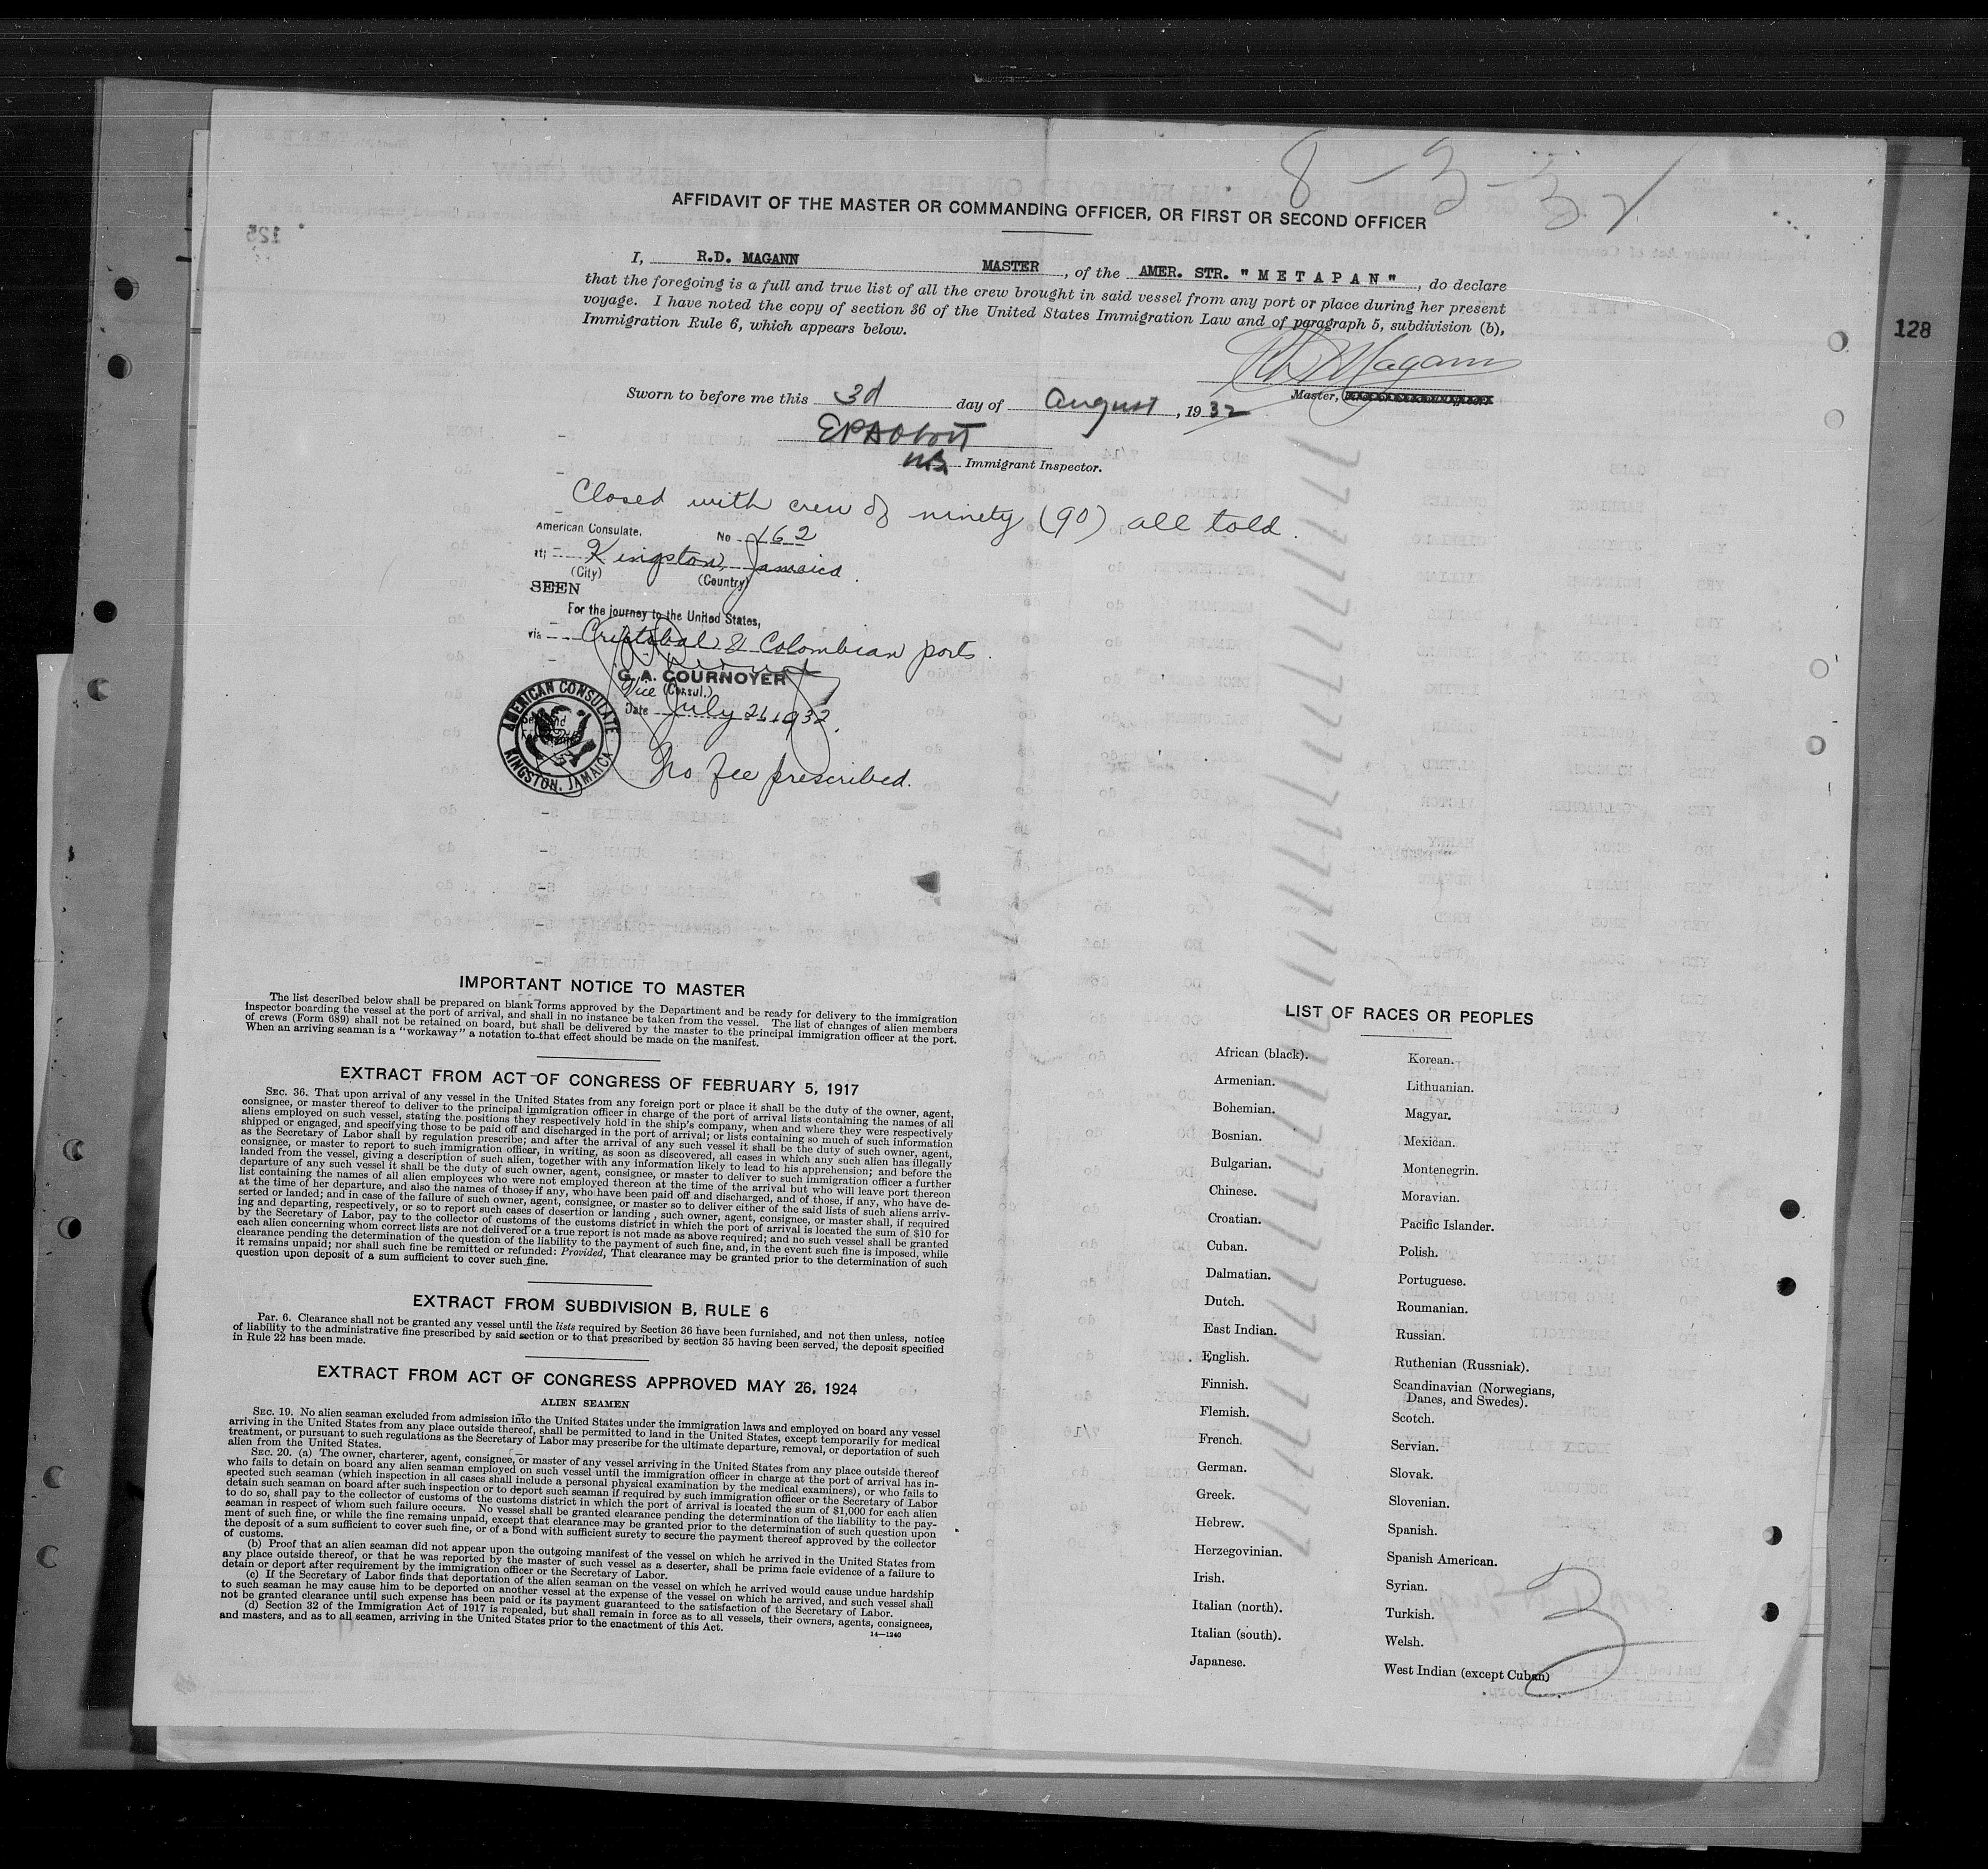 8-3-32
AFFIDAVIT OF THE MASTER OR COMMANDING OFFICER, OR FIRST OR SECOND OFFICER
I, R.D. MAGANN MASTER, of the AMER. STR. "METAPAN", do declare
that the foregoing is a full and true list of all the crew brought in said vessel from any port or place during her present
voyage. I have noted the copy of section 36 of the United States Immigration Law and of paragraph 5, subdivision (b),
Immigration Rule 6, which appears below.
RD Magann
Master,
Sworn to before me this 3d day of August, 1932
Immigrant Inspector.
128
125
Closed with crew of ninety (90) all told.
American Consulate. No 162
at Kingston, Jamaica.
(City) (Country)
SEEN
For the journey to the United States,
via Cristobal & Colombian ports.
G. A. COURNOYER
Vice (Consul.)
Date July 21, 1932.
AMERICAN CONSULATE
KINGSTON, JAMAICA
No fee prescribed.
IMPORTANT NOTICE TO MASTER
The list described below shall be prepared on blank forms approved by the Department and be ready for delivery to the immigration
inspector boarding the vessel at the port of arrival, and shall in no instance be taken from the vessel. The list of changes of alien members
of crews (Form 689) shall not be retained on board, but shall be delivered by the master to the principal immigration officer at the port.
When an arriving seaman is a "workaway" a notation to that effect should be made on the manifest.
EXTRACT FROM ACT OF CONGRESS OF FEBRUARY 5, 1917
SEC. 36. That upon arrival of any vessel in the United States from any foreign port or place it shall be the duty of the owner, agent,
consignee, or master thereof to deliver to the principal immigration officer in charge of the port of arrival lists containing the names of all
aliens employed on such vessel, stating the positions they respectively hold in the ship's company, when and where they were respectively
shipped or engaged, and specifying those to be paid off and discharged in the port of arrival; or lists containing so much of such information
as the Secretary of Labor shall by regulation prescribe; and after the arrival of any such vessel it shall be the duty of such owner, agent,
consignee, or master to report to such immigration officer, in writing, as soon as discovered, all cases in which any such alien has illegally
landed from the vessel, giving a description of such alien, together with any information likely to lead to his apprehension; and before the
departure of any such vessel it shall be the duty of such owner, agent, consignee, or master to deliver to such immigration officer a further
list containing the names of all alien employees who were not employed thereon at the time of the arrival but who will leave port thereon
at the time of her departure, and also the names of those, if any, who have been paid off and discharged, and of those, if any, who have de-
serted or landed; and in case of the failure of such owner, agent, consignee, or master so to deliver either of the said lists of such aliens arriv-
ing and departing, respectively, or so to report such cases of desertion or landing, such owner, agent, consignee, or master shall, if required
by the Secretary of Labor, pay to the collector of customs of the customs district in which the port of arrival is located the sum of $10 for
each alien concerning whom correct lists are not delivered or a true report is not made as above required; and no such vessel shall be granted
clearance pending the determination of the question of the liability to the payment of such fine, and, in the event such fine is imposed, while
it remains unpaid; nor shall such fine be remitted or refunded: Provided, That clearance may be granted prior to the determination of such
question upon deposit of a sum sufficient to cover such fine.
EXTRACT FROM SUBDIVISION B, RULE 6
Par. 6. Clearance shall not be granted any vessel until the lists required by Section 36 have been furnished, and not then unless, notice
of liability to the administrative fine prescribed by said section or to that prescribed by section 35 having been served, the deposit specified
in Rule 22 has been made.
EXTRACT FROM ACT OF CONGRESS APPROVED MAY 26, 1924
ALIEN SEAMEN
SEC. 19. No alien seaman excluded from admission into the United States under the immigration laws and employed on board any vessel
arriving in the United States from any place outside thereof, shall be permitted to land in the United States, except temporarily for medical
treatment, or pursuant to such regulations as the Secretary of Labor may prescribe for the ultimate departure, removal, or deportation of such
alien from the United States.
SEC. 20. (a) The owner, charterer, agent, consignee, or master of any vessel arriving in the United States from any place outside thereof
who fails to detain on board any alien seaman employed on such vessel until the immigration officer in charge at the port of arrival has in-
spected such seaman (which inspection in all cases shall include a personal physical examination by the medical examiners), or who fails to
detain such seaman on board after such inspection or to deport such seaman if required by such immigration officer or the Secretary of Labor
to do so, shall pay to the collector of customs of the customs district in which the port of arrival is located the sum of $1,000 for each alien
seaman in respect of whom such failure occurs. No vessel shall be granted clearance pending the determination of the liability to the pay-
ment of such fine, or while the fine remains unpaid, except that clearance may be granted prior to the determination of such question upon
the deposit of a sum sufficient to cover such fine, or of a bond with sufficient surety to secure the payment thereof approved by the collector
of customs.
(b) Proof that an alien seaman did not appear upon the outgoing manifest of the vessel on which he arrived in the United States from
any place outside thereof, or that he was reported by the master of such vessel as a deserter, shall be prima facie evidence of a failure to
detain or deport after requirement by the immigration officer or the Secretary of Labor.
(c) If the Secretary of Labor finds that deportation of the alien seaman on the vessel on which he arrived would cause undue hardship
to such seaman he may cause him to be deported on another vessel at the expense of the vessel on which he arrived, and such vessel shall
not be granted clearance until such expense has been paid or its payment guaranteed to the satisfaction of the Secretary of Labor.
(d) Section 32 of the Immigration Act of 1917 is repealed, but shall remain in force as to all vessels, their owners, agents, consignees,
and masters, and as to all seamen, arriving in the United States prior to the enactment of this Act.
14—1240
LIST OF RACES OR PEOPLES
African (black).
Armenian.
Bohemian.
Bosnian.
Bulgarian.
Chinese.
Croatian.
Cuban.
Dalmatian.
Dutch.
East Indian.
English.
Finnish.
Flemish.
French.
German.
Greek.
Hebrew.
Herzegovinian.
Irish.
Italian (north).
Italian (south).
Japanese.
Korean.
Lithuanian.
Magyar.
Mexican.
Montenegrin.
Moravian.
Pacific Islander.
Polish.
Portuguese.
Roumanian.
Russian.
Ruthenian (Russniak).
Scandinavian (Norwegians,
Danes, and Swedes).
Scotch.
Servian.
Slovak.
Slovenian.
Spanish.
Spanish American.
Syrian.
Turkish.
Welsh.
West Indian (except Cuban)
3